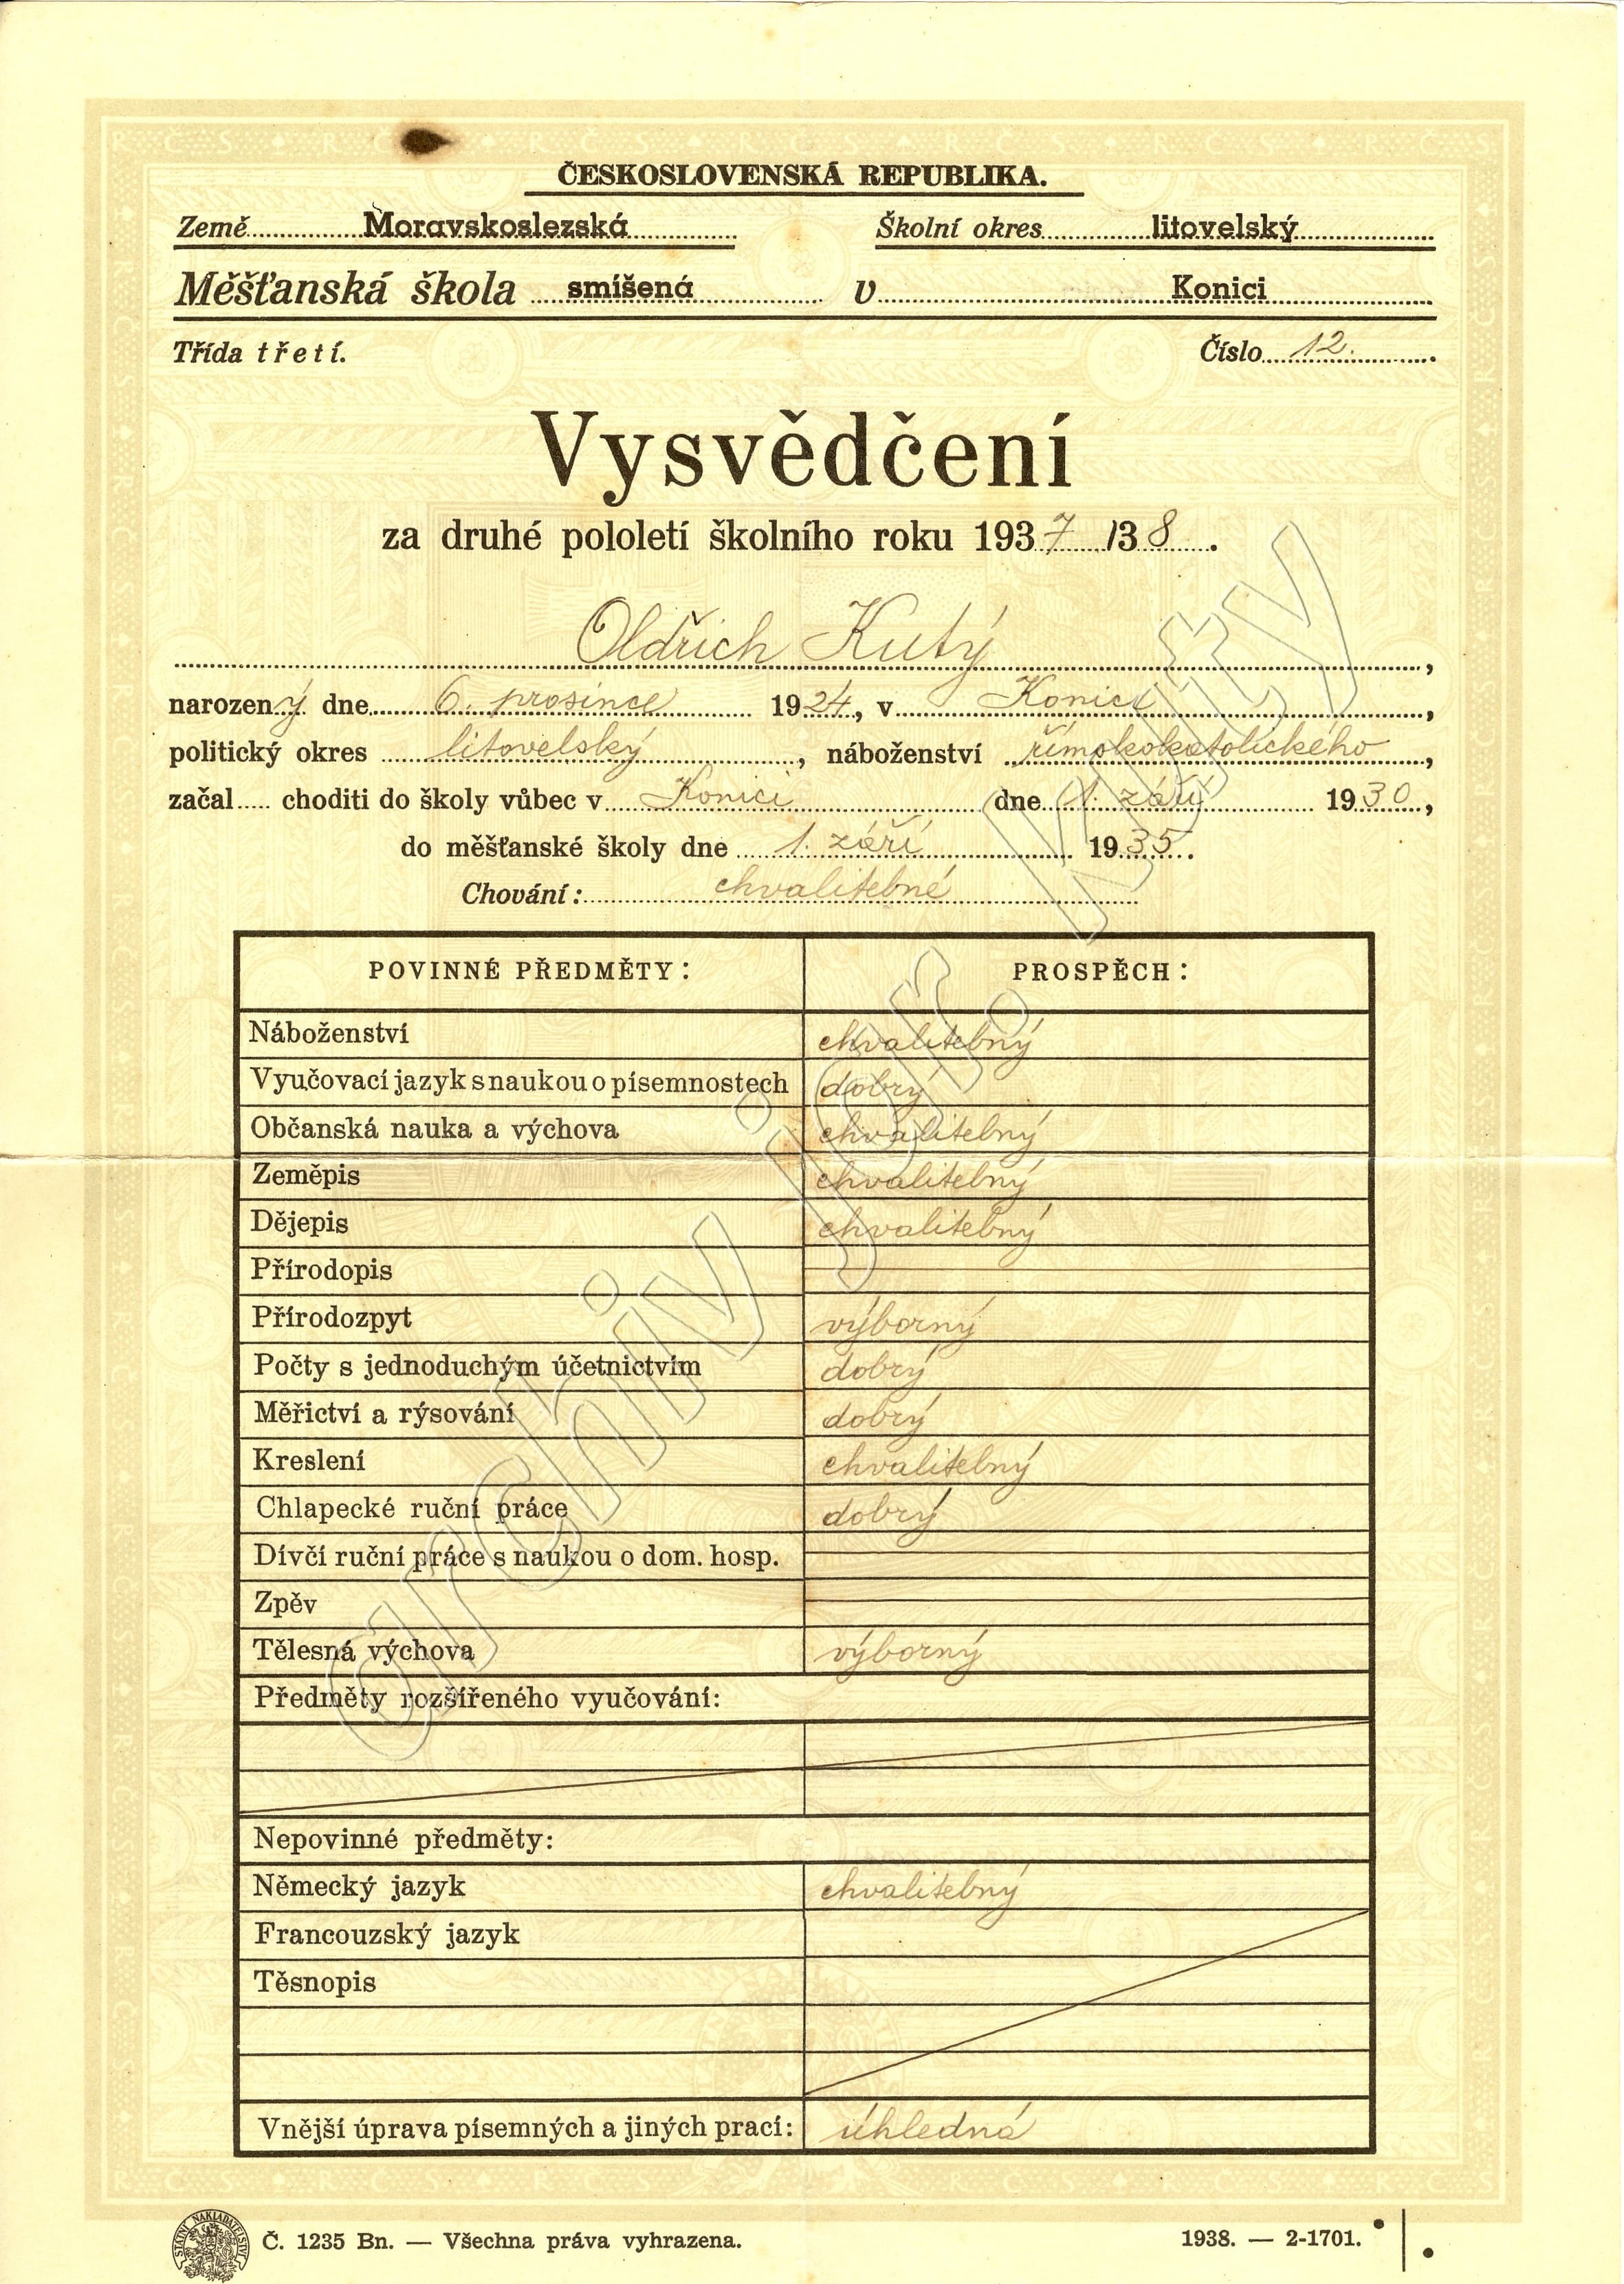 ČESKOSLOVENSKÁ REPUBLIKA.
Země Moravskoslezská Školní okres litovelský
Měšťanská škola smíšená v Konici
Třída třetí. Číslo 12.
Vysvědčení
za druhé pololetí školního roku 1937/38.
Oldřich Kutý,
narozený dne 6. prosince 1924, v Konici,
politický okres litovelský, náboženství římskokatolického,
začal choditi do školy vůbec v Konici dne 1. září 1930,
do měšťanské školy dne 1. září 1935.
Chování: chvalitebné
POVINNÉ PŘEDMĚTY: PROSPĚCH:
Náboženství chvalitebný
Vyučovací jazyk s naukou o písemnostech dobrý
Občanská nauka a výchova chvalitebný
Zeměpis chvalitebný
Dějepis chvalitebný
Přírodopis
Přírodozpyt výborný
Počty s jednoduchým účetnictvím dobrý
Měřictví a rýsování dobrý
Kreslení chvalitebný
Chlapecké ruční práce dobrý
Dívčí ruční práce s naukou o dom. hosp.
Zpěv
Tělesná výchova výborný
Předměty rozšířeného vyučování:
Nepovinné předměty:
Německý jazyk chvalitebný
Francouzský jazyk
Těsnopis
Vnější úprava písemných a jiných prací: úhledná
STÁTNÍ NAKLADATELSTVÍ
Č. 1235 Bn. — Všechna práva vyhrazena. 1938. — 2-1701.
archiv jar. Kutý